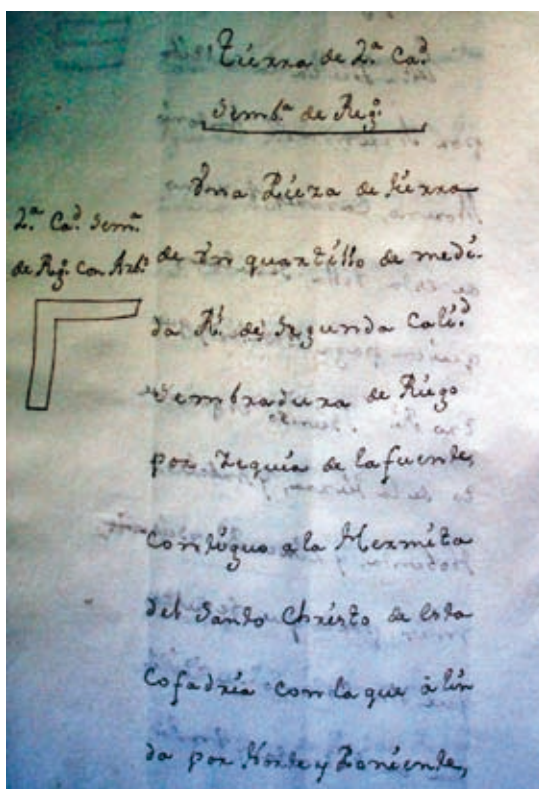 tierra de 2.ª Ca.d
Semb.ª de Reg.º
Una Pieza de tierra
2.ª Ca.d Sem.ª
de Reg.º Con Arb.s
de Un quartillo de medi-
da R.l de Segunda Cali.d
Sembradura de Riego
por Zequia de la fuente,
Contiguo a la Hermita
del Santo Christo de esta
Cofadria con la que àlin
da por Norte y Poniente,